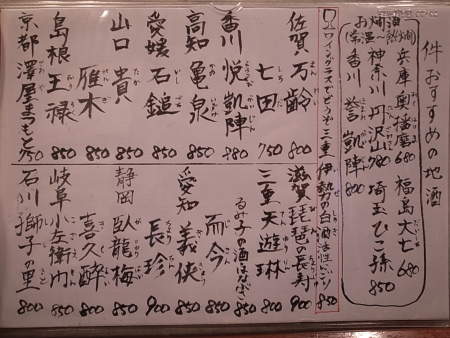 件 おすすめの地酒
お燗酒
(常温~熱燗)
兵庫 奥播磨 680 福島 大七 680
神奈川 丹沢山 780 埼玉 ひこ孫 850
香川 誉 凱陣 800
ワイングラスでどうぞ 三重 伊勢の白酒 活性にごり 850
佐賀 万齢 800
七田 750
香川 悦凱陣 980
高知 亀泉 850
愛媛 石鎚 850
山口 貴 850
雁木 850
島根 王禄 850
京都 澤屋まつもと 750
滋賀 琵琶の長寿 900
三重 天遊琳 800
るみ子の酒 はなざ 850
而今 850
愛知 義侠 850
長珍 900
静岡 臥龍梅 850
喜久酔 800
岐阜 小左衛門 850
石川 獅子の里 800